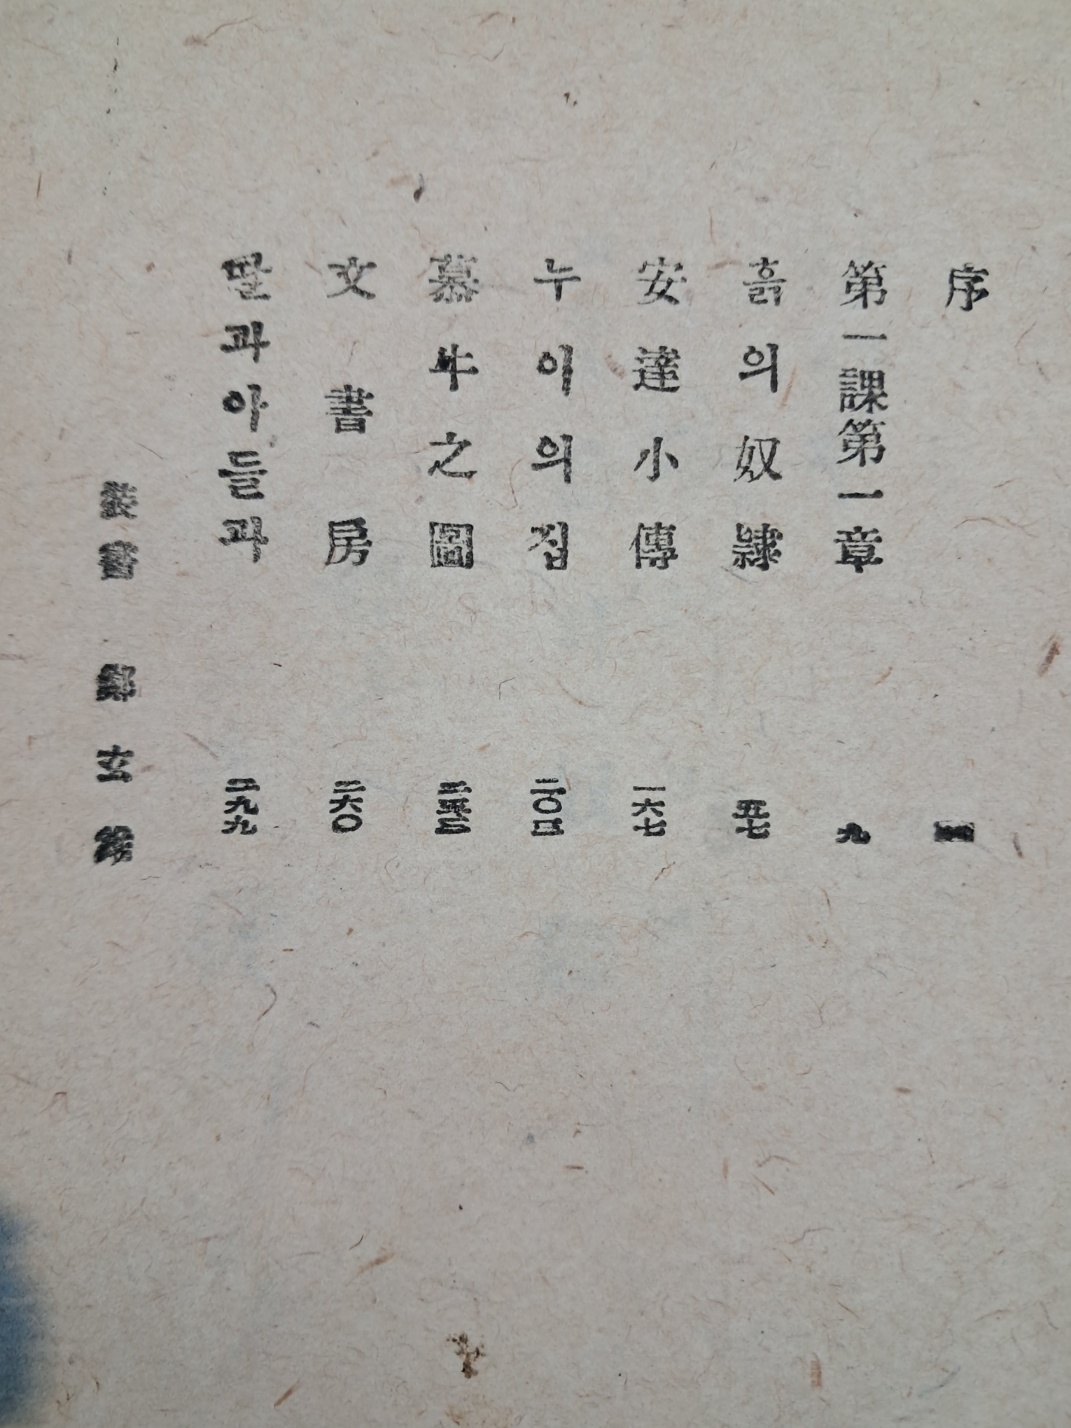 序
第一課第一章 九
흙의奴隷 五七
安達小傳 一六七
누이의집 二〇三
慕牛之圖
文書房 二六〇
딸과아들과 二九九
裝畵 鄭玄雄